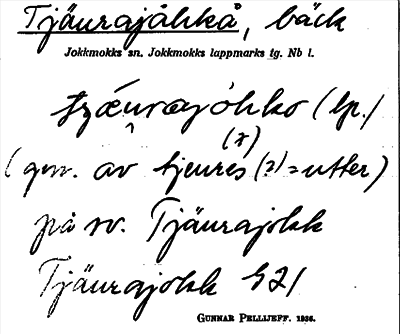 Tjäurajåhkå, bäck
Jokkmokks sn. Jokkmokks lappmarks tg. Nb l.
tzäurajóhko (lp./
(?)
(gm. av tjeures (?) = utter)
på sv. Tjäurajokk
Tjäurajokk GZ/
GUNNAR PELLIJEFF. 1936.